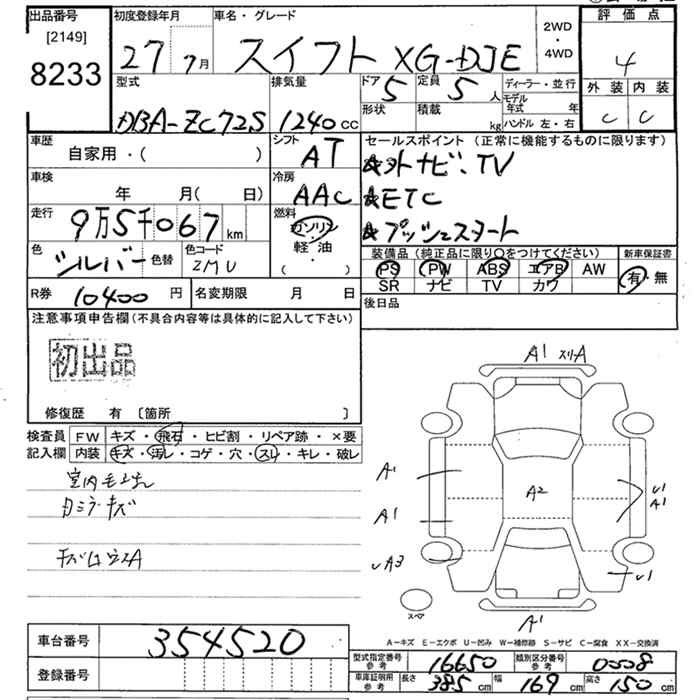 出品番号 初度登録年月 車名・グレード 2WD・4WD 評価点
[2149]
8233 27 7月 スイフト XG-DJE 4
型式 排気量 ドア 5 定員 5人 ディーラー・並行 外装 内装
形状 積載 kg モデル年式 年 C C
DBA-ZC72S 1240cc ハンドル 左・右
車歴 自家用・( ) シフト AT セールスポイント (正常に機能するものに限ります)
車検 年 月( 日) 冷房 AAC ☆外ナビ・TV
☆ETC
走行 9万5千067km 燃料 ガソリン・軽油 ( ) ☆プッシュスタート
色 シルバー 色替 色コード ZMU 装備品 (純正品に限り○をつけてください) 新車保証書
PS PW ABS エアB AW 有・無
R券 10400円 名変期限 月 日 SR ナビ TV カワ
注意事項申告欄(不具合内容等は具体的に記入して下さい) 後日品
初出品
修復歴 有 〔箇所 〕
検査員 FW キズ・飛石・ヒビ割・リペア跡・×要
記入欄 内装 キズ・汚レ・コゲ・穴・スレ・キレ・破レ
A1 スリA
A1
A2
U1
A1
A1
UA3
U1
スペア
A1
A-キズ E-エクボ U-凹み W-補修跡 S-サビ C-腐食 XX-交換済
車台番号 354520
型式指定番号 参考 16650 類別区分番号 参考 0008
登録番号
車庫証明用 参考 長さ 385cm 幅 169cm 高さ 150cm